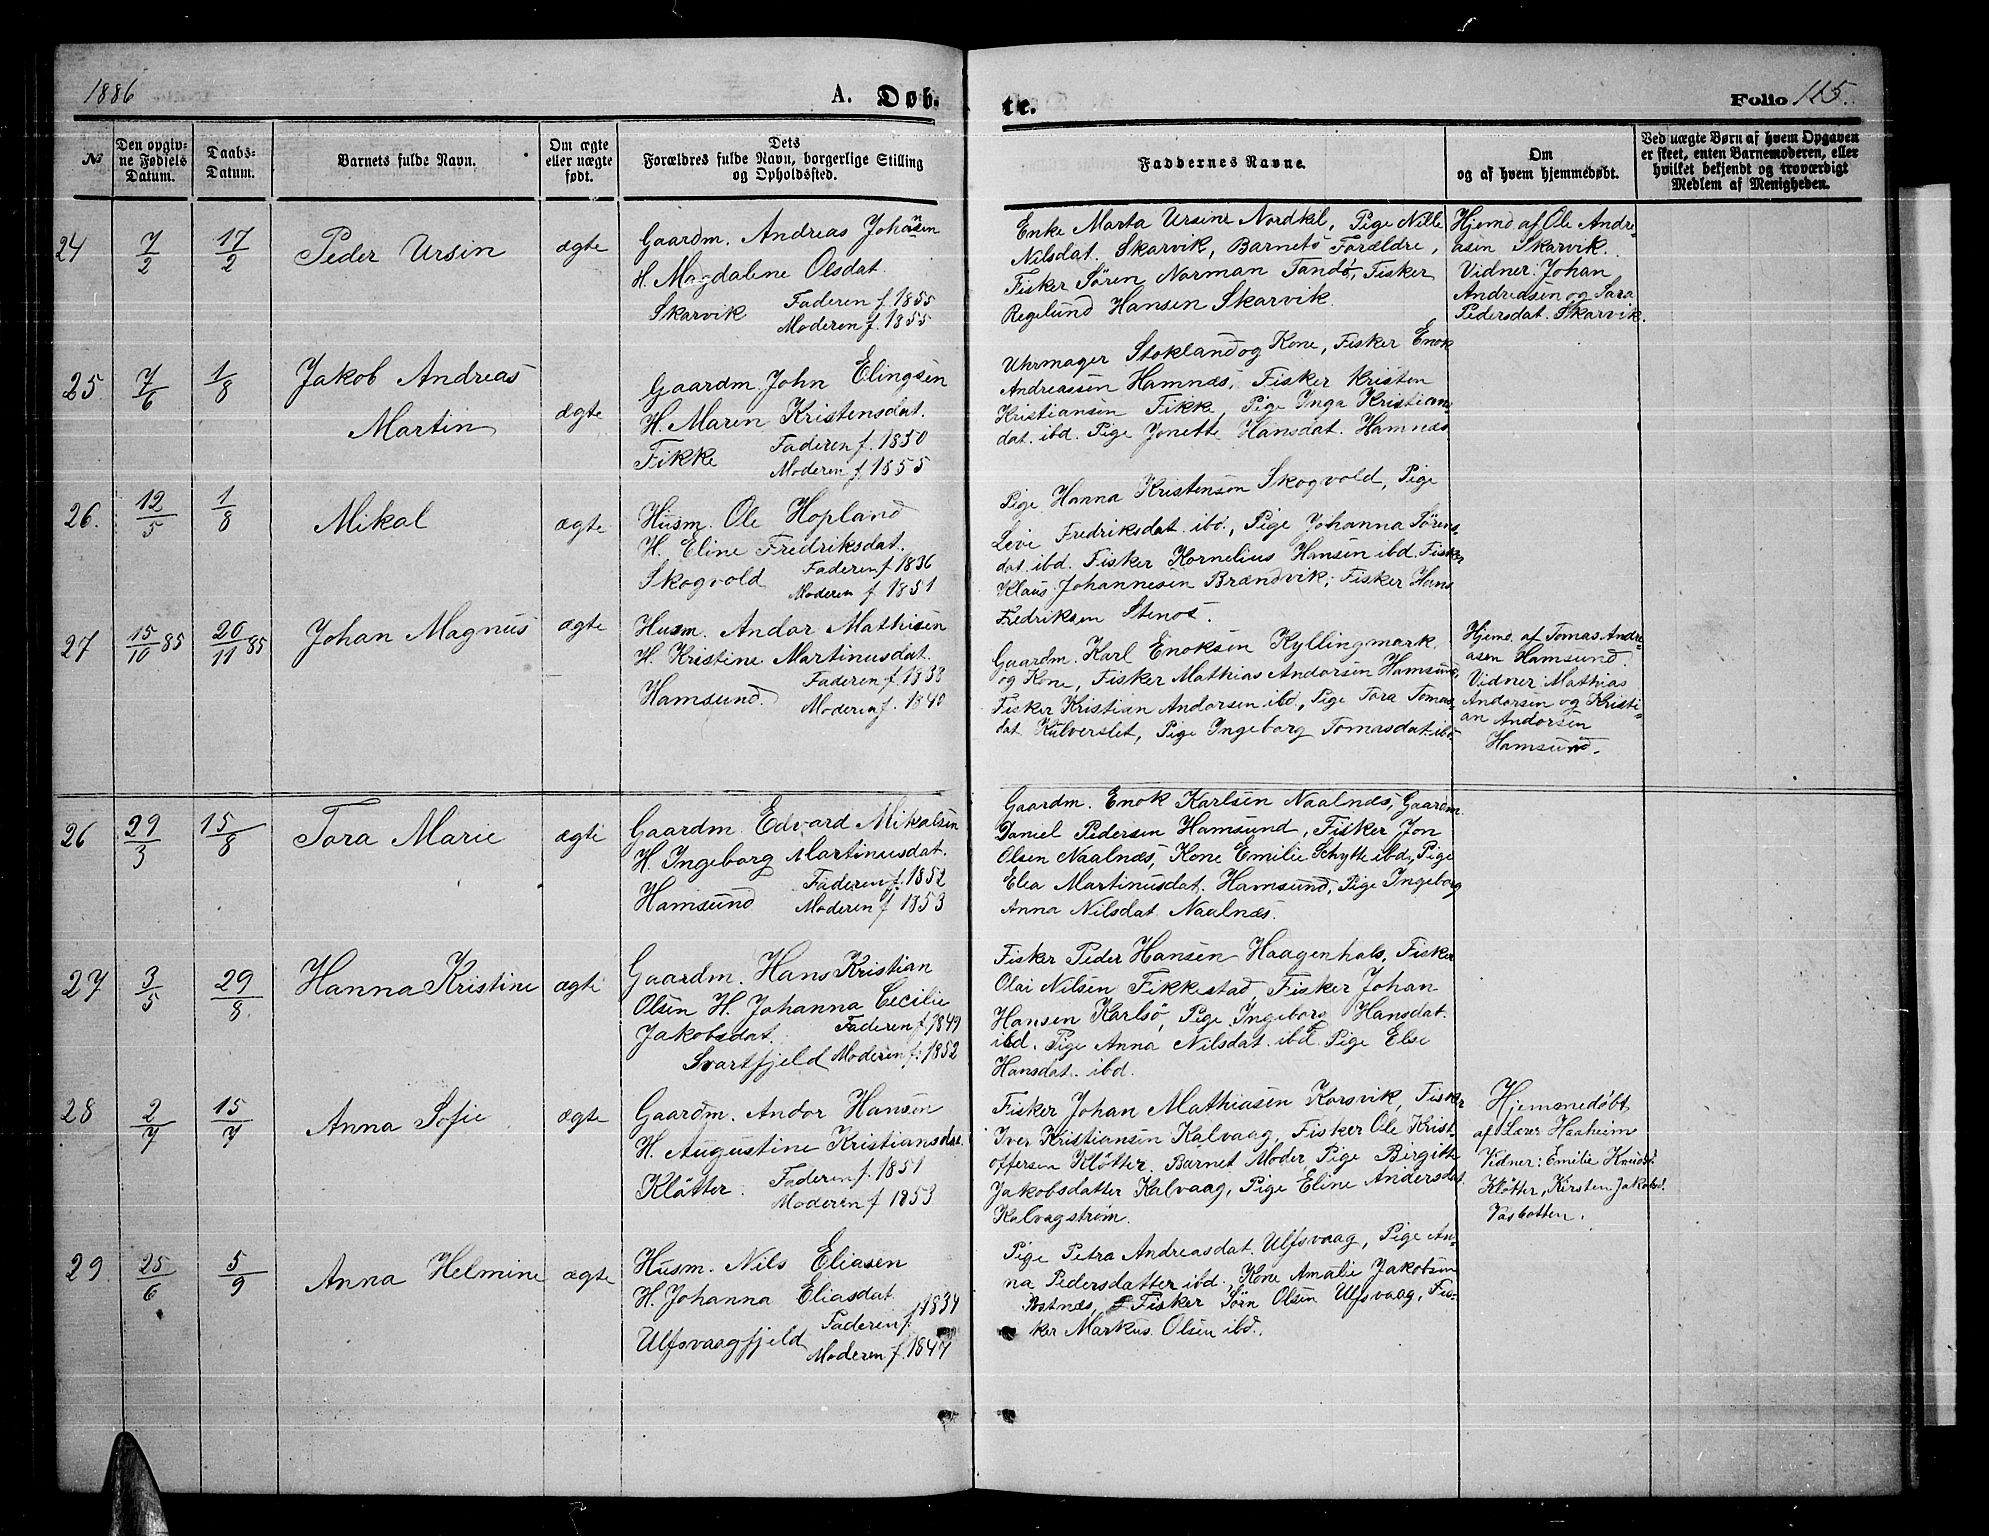 1886
A. Døb-
te.
Folio 115.
No
Den opgiv-
ne Fødsels
Datum.
Daabs-
Datum.
Barnets fulde Navn.
Om ægte
eller uægte
født.
Dets
Forældres fulde Navn, borgerlige Stilling
og Opholdssted.
Faddernes Navne.
Om
og af hvem hjemmedøbt.
Ved uægte Børn af hvem Opgaven
er skeet, enten Barnemoderen, eller
hvilket bekjendt og troværdigt
Medlem af Menigheden.
24
7/2
17/2
Peder Ursin
ægte
Gaardm. Andreas Johansen
H. Magdalene Olsdat.
Faderen f. 1855
Skarvik
Moderen f. 1855
Enke Marta Ursine Nordkil, Pige Nille
Nilsdat. Skarvik, Barnets Forældre,
Fisker Sören Norman Tandö, Fisker
Regelund Hansen Skarvik.
Hjemd. af Ole Andre-
asen Skarvik.
Vidner: Johan
Andreasen og Sara
Pedersdat. Skarvik.
25
7/6
1/8
Jakob Andreas
Martin
ægte
Gaardm. John Elingsen
H. Maren Kristensdat.
Faderen f. 1850
Fikke
Moderen f. 1855
Uhrmager Stokland og Kone, Fisker Enok
Andreassen Hamnæs, Fisker Kristen
Kristiansen Fikke, Pige Inga Kristians-
dat. ibd. Pige Jonette Hansdat. Hamnæs
26.
12/5
1/8
Mikal
ægte
Husm. Ole Hopland
H. Eline Fredriksdat.
Faderen f 1836
Skogvold
Moderen f. 1851
Pige Hanna Kristensen Skogvold, Pige
Levi Fredriksdat. ibd., Pige Johanna Sörens-
dat. ibd. Fisker Kornelius Hansen ibd. Fisker
Klaus Johannesen Brændvik, Fisker Hans
Fredriksen Stenos.
27
15/10 85
20/11 85
Johan Magnus
ægte
Husm. Andor Mathisen
H. Kristine Martinusdat.
Faderen f. 1838
Hamsund.
Moderen f. 1840
Gaardm. Karl Enoksen Kyllingmark
og Kone, Fisker Mathias Andorsen Hamsund,
Fisker Kristian Andorsen ibd., Pige Tora Tomas-
dat. Kulverslet, Pige Ingeborg Tomasdat. ibd
Hjemd. af Tomas Andre-
asen Hamsund.
Vidner: Mathias
Andorsen og Kristi-
an Andorsen
Hamsund.
26
29/3
15/8
Tora Marie
ægte
Gaardm. Edvard Mikalsen
H. Ingeborg Martinusdat.
Faderen f. 1852
Hamsund
Moderen f 1853
Gaardm. Enok Karlsen Naalnæs, Gaardm.
Daniel Pedersen Hamsund, Fisker Jon
Olsen Naalnæs, Kone Emilie Schytte ibd., Pige
Elea Martinusdat. Hamsund, Pige Ingeborg
Anna Nilsdat Naalnæs.
27
3/5
29/8
Hanna Kristine
ægte
Gaardm. Hans Kristian
Olsen H. Johanna Cecilie
Jakobsdat.
Faderen f. 1849
Svartfjeld Moderen f. 1852
Fisker Peder Hansen Haagenhals, Fisker
Olai Nilsen Fikkestad, Fisker Johan
Hansen Karlsö, Pige Ingeborg Hansdat.
ibd. Pige Anna Nilsdat. ibd. Pige Else
Hansdat. ibd.
28
2/7
15/7
Anna Sofie
ægte
Gaardm. Andor Hansen
H. Augustine Kristiansdat.
Faderen f. 1851
Klötter.
Moderen f 1853
Fisker Johan Mathiasen Korsvik, Fisker
Iver Kristiansen Kalvaag, Fisker Ole Krist-
offersen Klötter. Barnet Moder Pige Birgitte
Jakobsdatter Kalvaag, Pige Eline Andersdat.
Kalvagström.
Hjemmedøbt
af Lærer Haaheim
Vidner: Emilie Knudsd.
Klötter, Kirsten Jakobsd.
Vasbotten.
29
25/6
5/9
Anna Helmine
ægte
Husm. Nils Eliasen
H. Johanna Eliasdat.
Faderen f. 1834
Ulfsvaagfjeld
Moderen f. 1847
Pige Petra Andreasdat. Ulfsvaag, Pige An-
na Pedersdatter ibd. Kone Amalie Jakobsen
Fisker Sörn Olsen Ulfsvaag, Fis-
ker Markus Olsen ibd.